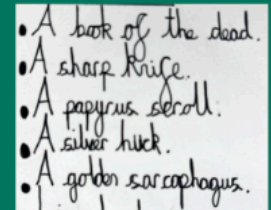 • A book of the dead.
• A sharp knife.
• A papyrus scroll.
• A silver huck.
• A golden sarcophagus.